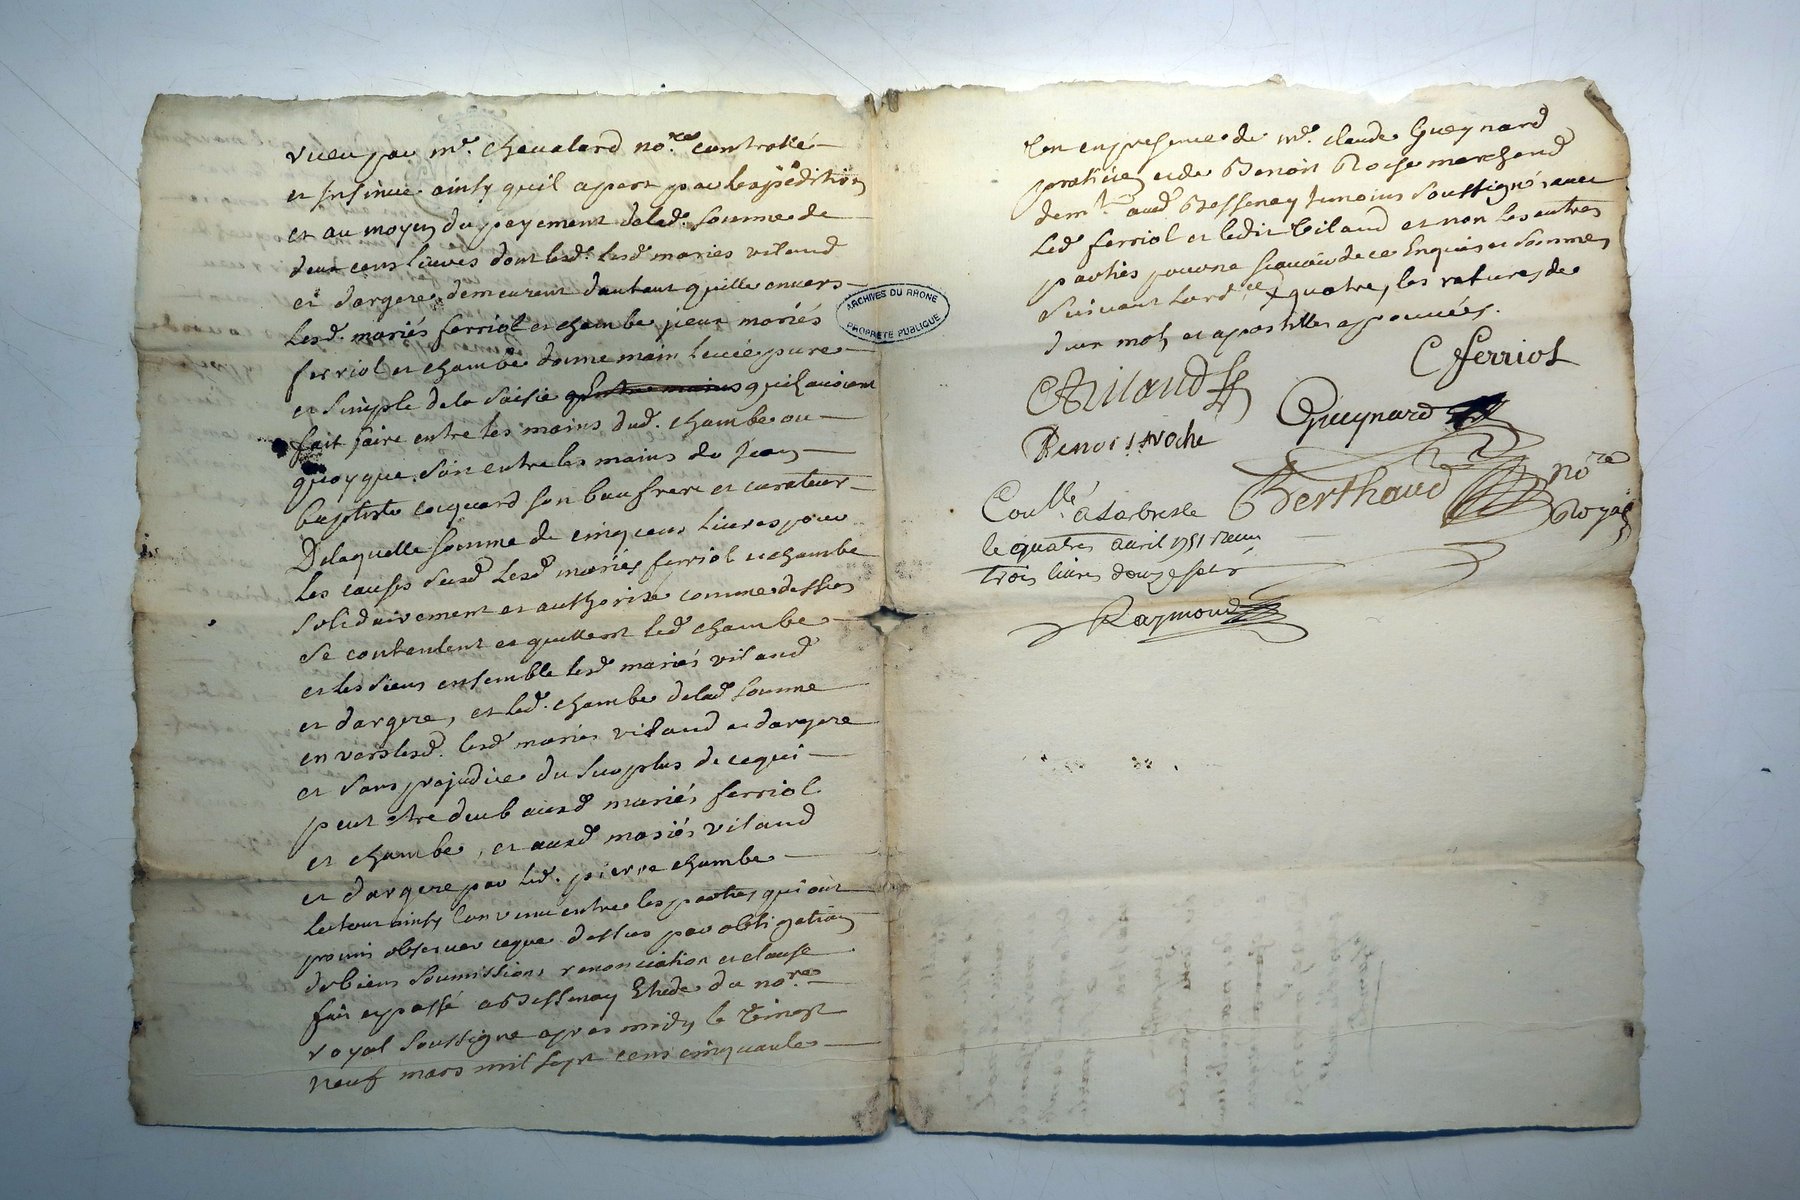 receu par me. chevalard nore. controllé
et insinué ainsy quil apert par lexpedition
et au moyen du payement delade. somme de
deux cens livres dont lesd. lesd. mariés vilaud
et dargere demeurent dautant quitte envers
lesd. mariés ferriol et chambe iceux mariés
ferriol et chambe donne main levée pure
et simple de la saisie quils avoient
fait faire entre les mains dud. chambe ou
quoyque soit entre les mains de Jean
baptiste coquard son beaufrere et curateur
De laquelle somme de cinq cens livres pour
les causes susd. lesd. mariés ferriol et chambe
solidairement et authorisée comme dessus
se contentent et quittent led. chambe
et les siens ensemble lesd. mariés vilaud
et dargere, et led. chambe delad. somme
envers lesd. lesd. mariés vilaud et dargere
et sans prejudice du surplus de ce qui
peut etre deub ausd. mariés ferriol
et chambe, et ausd. mariés vilaud
et dargere par led. pierre chambe
le tout ainsy convenu entre les parties qui ont
promis observer ce que dessus par obligation
de biens soumissions renonciation et clause
fait et passé a Bessenay Etude du nore.
royal soussigné apres midy le vingt
neuf mars mil sept cens cinquante
en presence de me. claude Gueynard
praticien et de Benoit Roche marchand
demt. aud. Bessenay temoins soussignés avec
led. ferriol et ledit vilaud et non les autres
parties pour ne scavoir de ce Enquis et sommés
suivant lord.ce quatre, les ratures de
deux mots et apostilles approuvées.
C ferriol
Vilaud
Gueynard
Benoist Roche
Berthaud nore
Royal
Conllé à Larbresle
le quatre avril 1751 receu
trois livres douze sols
Raymond
ARCHIVES DU RHONE
PROPRIÉTÉ PUBLIQUE